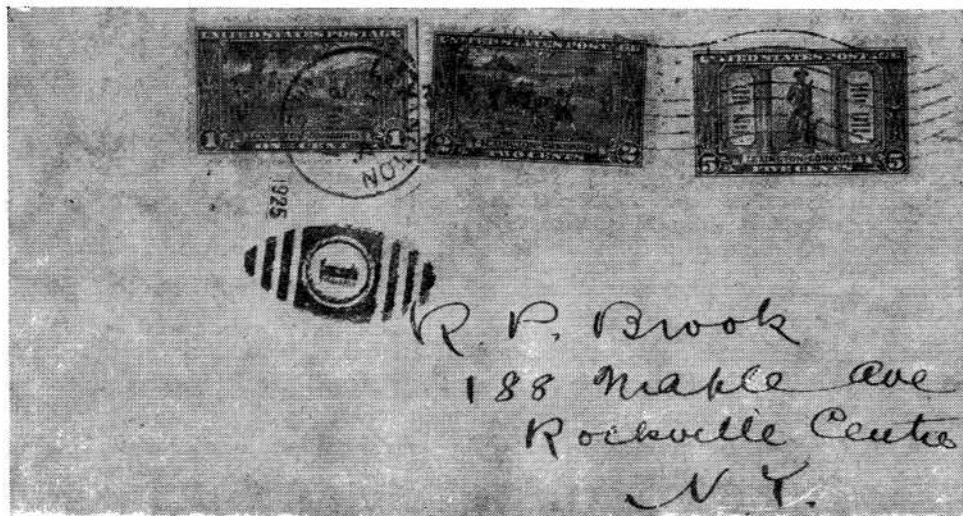 UNITED STATES POSTAGE
1 LEXINGTON-CONCORD 1
ONE CENT
2 2
TWO CENTS
UNITED STATES POSTAGE
5 LEXINGTON-CONCORD 5
FIVE CENTS
1925
1
R. P. Brook
188 Maple Ave
Rockville Centre
N Y.